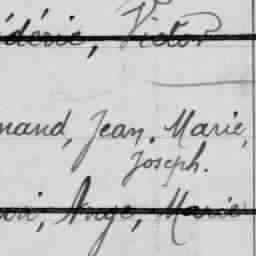 édéric, Victor
nand, Jean, Marie,
Joseph.
Ange, Marie